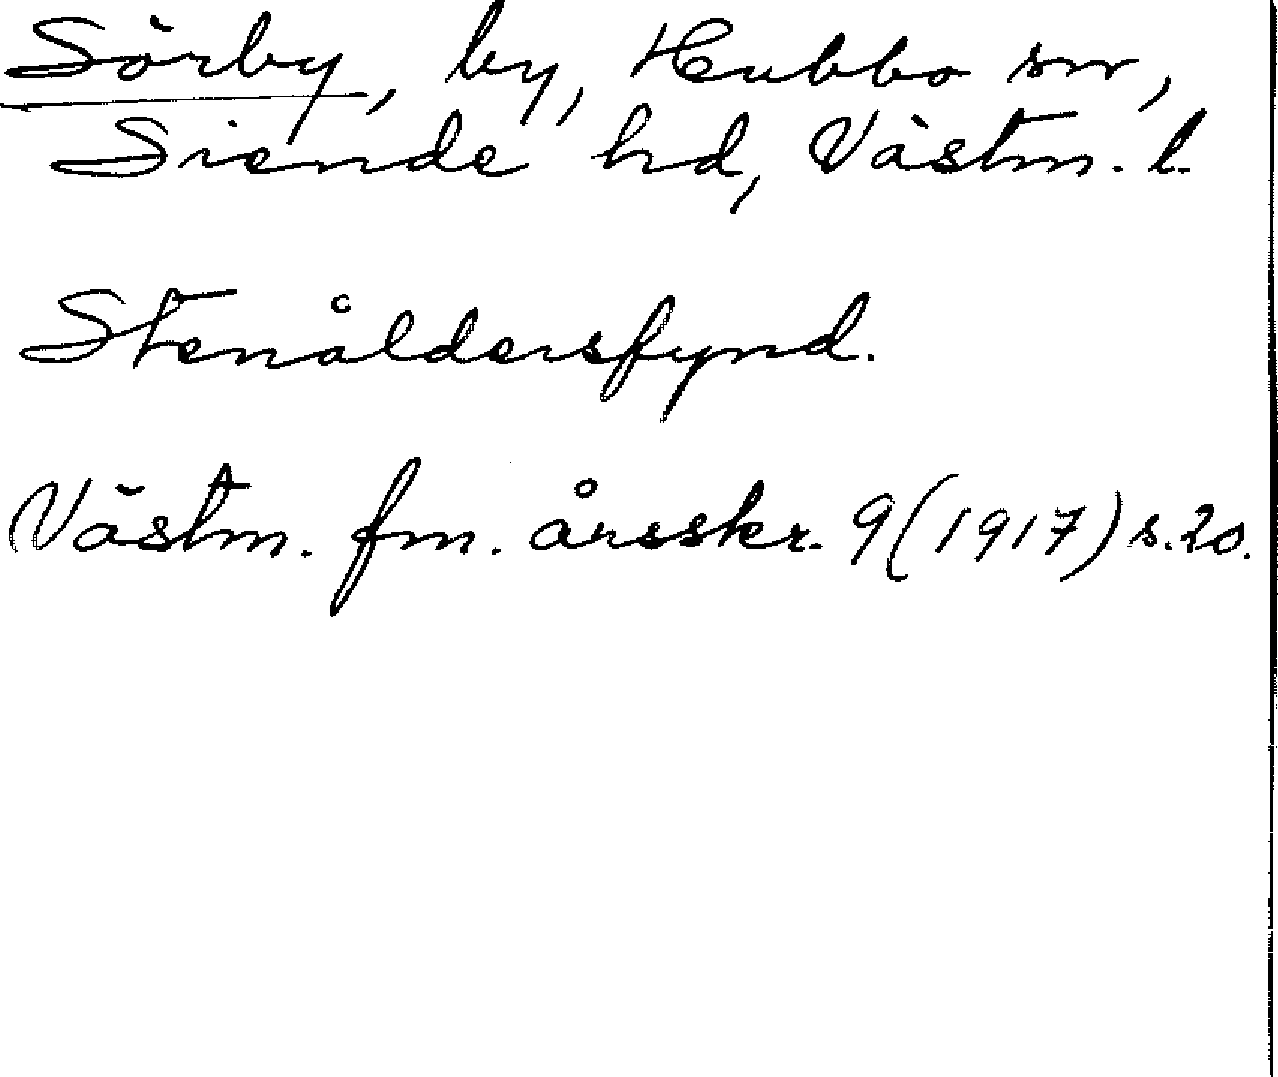 Sörby, by, Hubbo sn,
Siende hd, Västm. l.
Stenåldersfynd.
Västm. fm. årsskr. 9 (1917) s. 20.